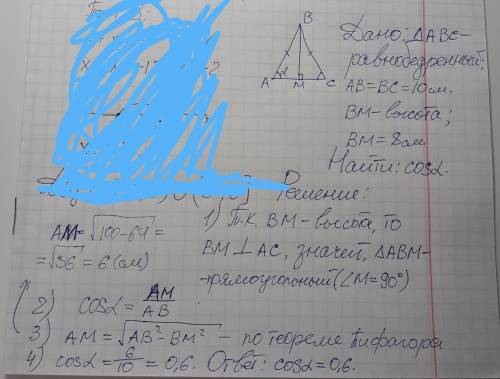 B
A α M C
Дано: △ABC-
равнобедренный;
AB=BC=10см.
BM-высота;
BM=8см
Найти: cosα.
Решение:
1) Т.к. BM-высота, то
BM⊥AC, значит, △ABM-
-прямоугольный (∠M=90°)
AM=√100-64=
=√36=6(см)
2) cosα=AM/AB
3) AM=√AB²-BM² - по теореме Пифагора
4) cosα=6/10=0,6. Ответ: cosα=0,6.